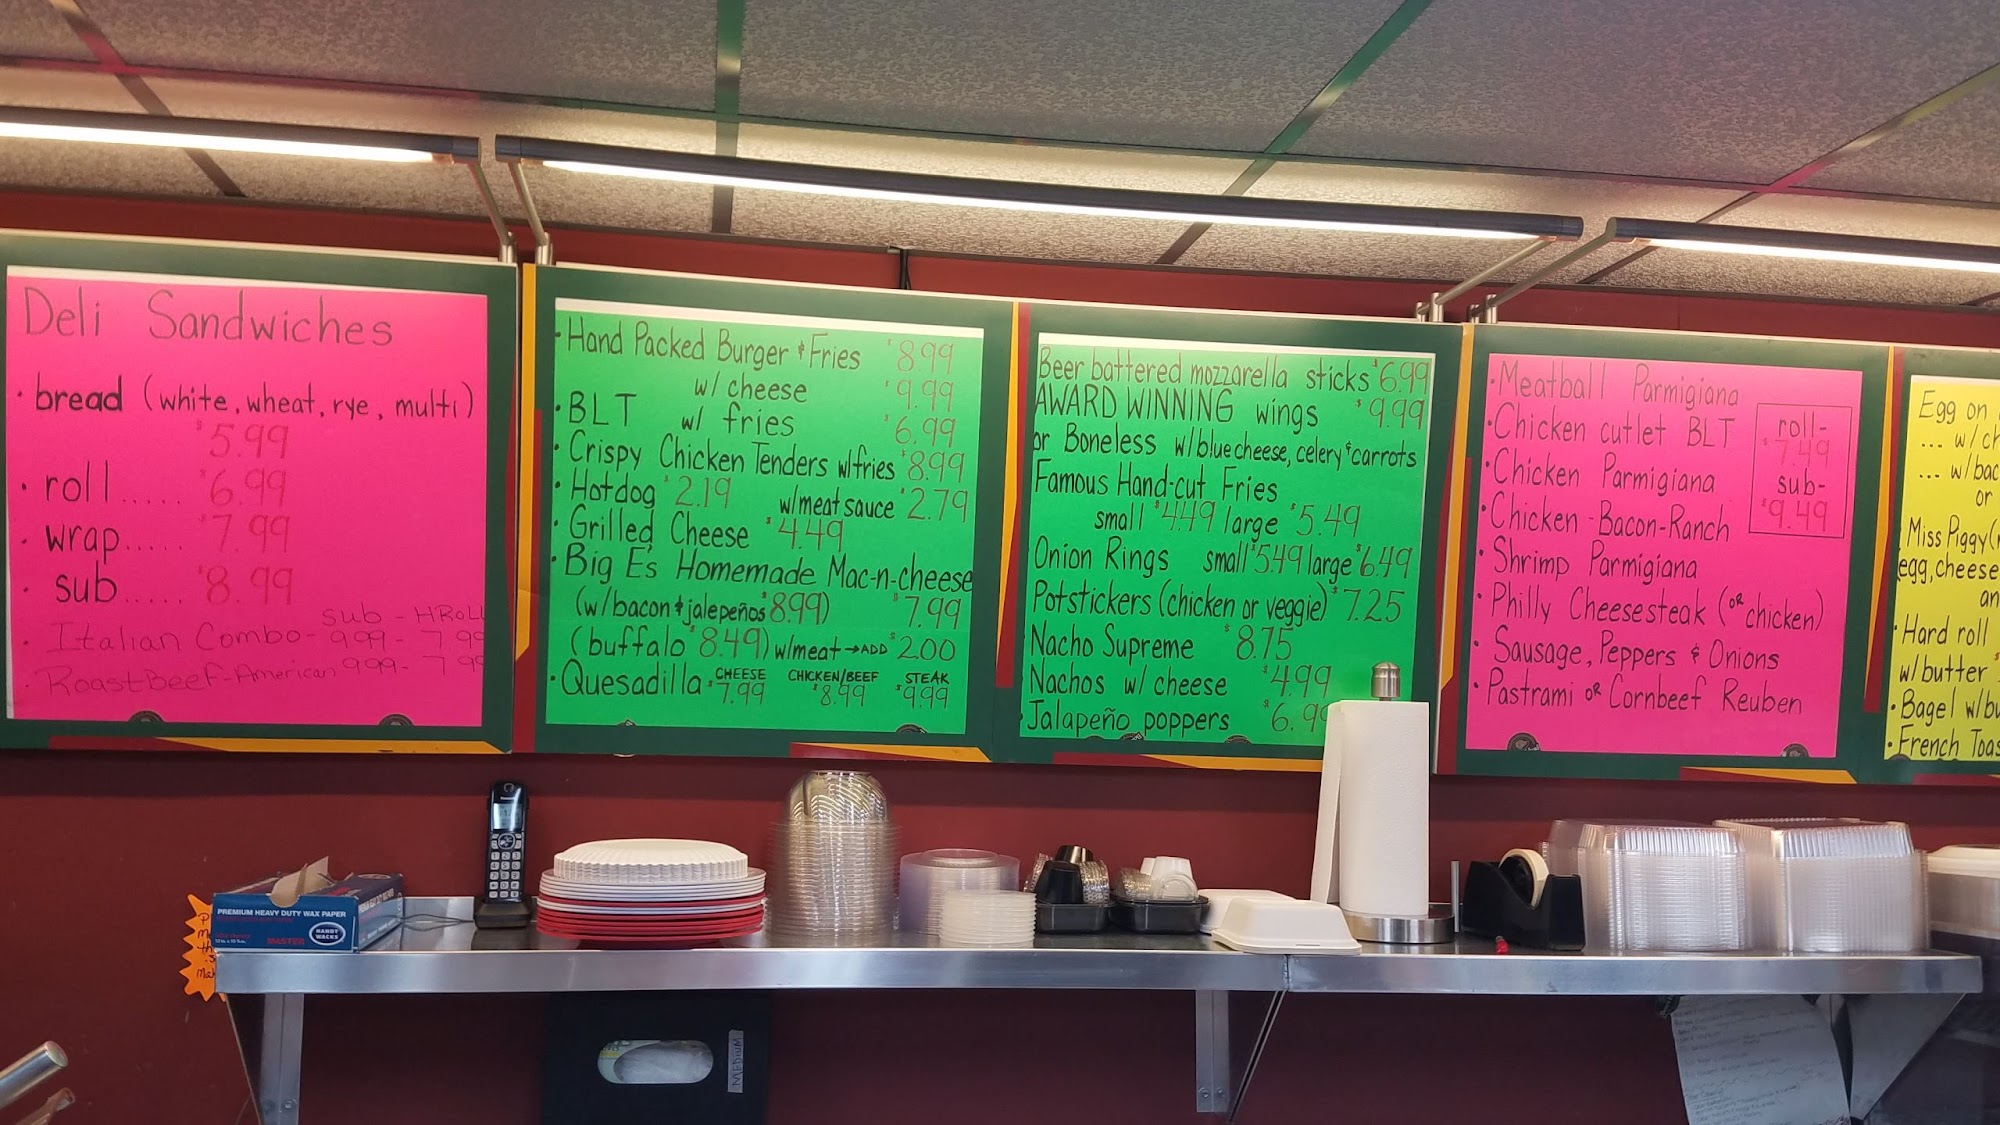 Deli Sandwiches
· bread (white, wheat, rye, multi)
$5.99
· roll...... $6.99
· wrap...... $7.99
· sub..... $8.99
sub - HROLL
· Italian Combo - 9.99 - 7.99
· Roast Beef - American 9.99 - 7.99
· Hand Packed Burger & Fries $8.99
w/ cheese $9.99
· BLT w/ fries $6.99
· Crispy Chicken Tenders w/fries $8.99
· Hotdog $2.19 w/meat sauce $2.79
· Grilled Cheese $4.49
· Big E's Homemade Mac-n-cheese
(w/bacon & jalepeños $8.99) $7.99
(buffalo $8.49) w/meat → ADD $2.00
· Quesadilla CHEESE $7.99 CHICKEN/BEEF $8.99 STEAK $9.99
Beer battered mozzarella sticks $6.99
AWARD WINNING wings $9.99
or Boneless w/bluecheese, celery & carrots
Famous Hand-cut Fries
small $4.49 large $5.49
Onion Rings small $5.49 large $6.49
Potstickers (chicken or veggie) $7.25
Nacho Supreme $8.75
Nachos w/ cheese $4.99
Jalapeño poppers $6.99
· Meatball Parmigiana
· Chicken cutlet BLT
· Chicken Parmigiana
· Chicken-Bacon-Ranch
· Shrimp Parmigiana
· Philly Cheesesteak (or chicken)
· Sausage, Peppers & Onions
· Pastrami or Cornbeef Reuben
roll-
$7.49
sub-
$9.49
Egg on
... w/ch
... w/bac
or
· Miss Piggy (
egg, cheese
an
· Hard roll
w/butter
· Bagel w/bu
· French Toas
PREMIUM HEAVY DUTY WAX PAPER
HANDY WACKS
MASTER
MEDIUM